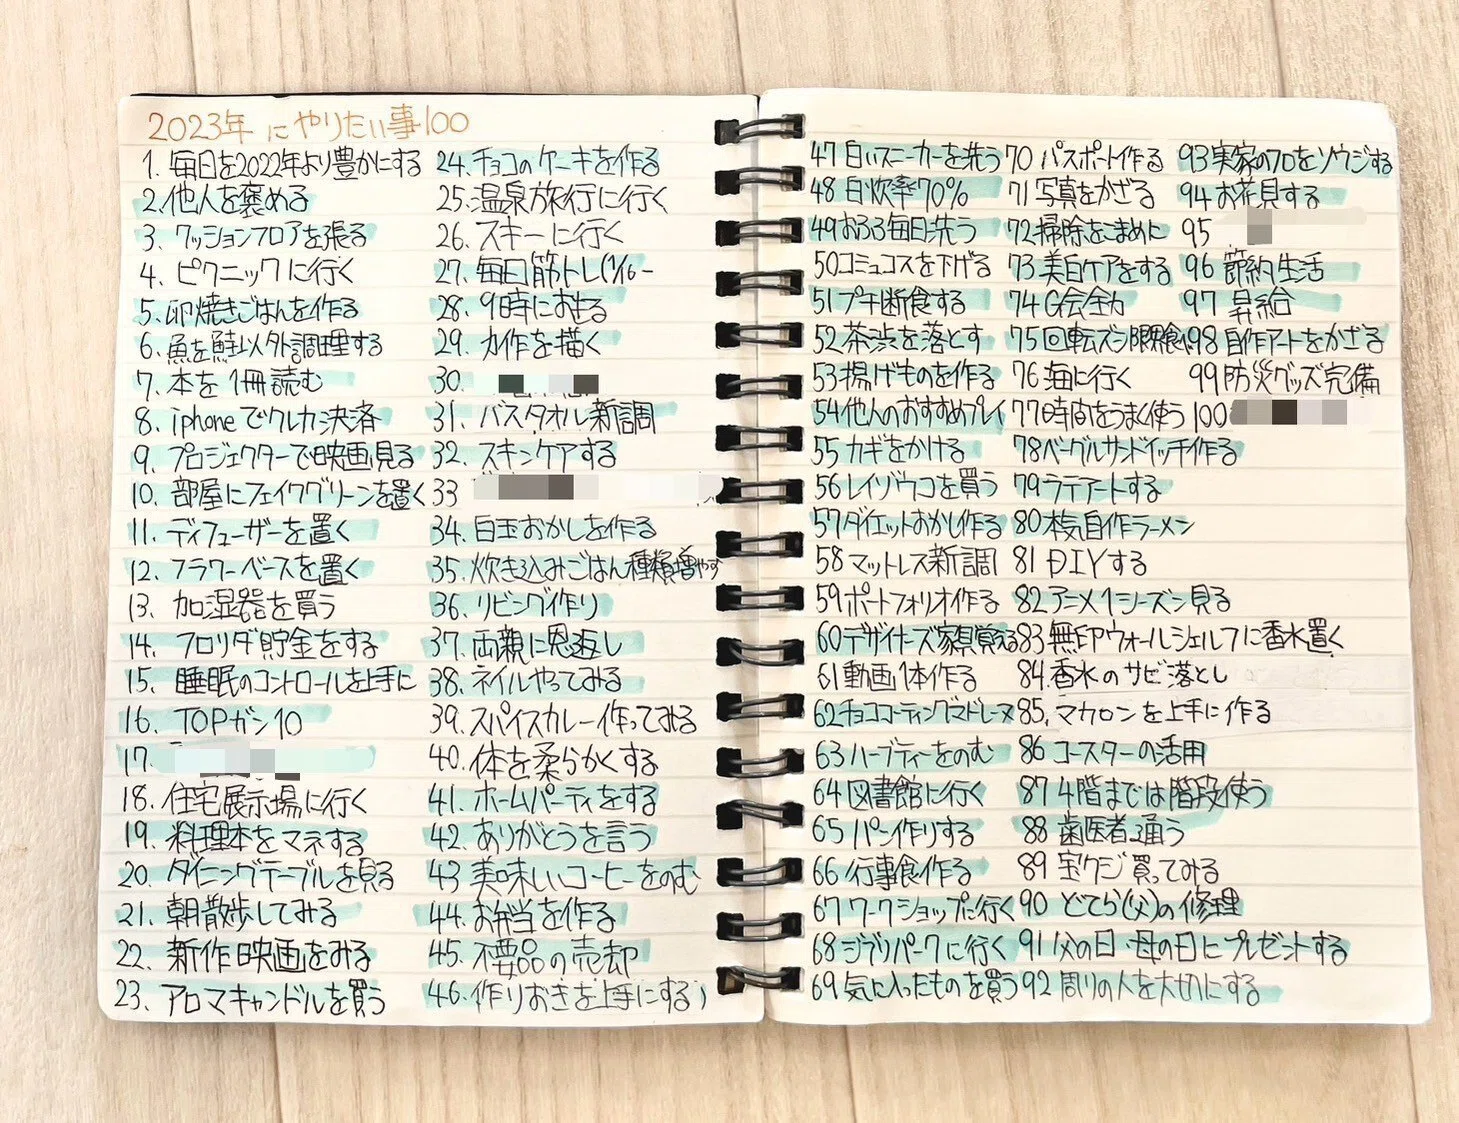 2023年にやりたい事100
1. 毎日を2022年より豊かにする
2. 他人を褒める
3. クッションフロアを張る
4. ピクニックに行く
5. 卵焼きごはんを作る
6. 魚を鮭以外調理する
7. 本を1冊読む
8. iphoneでクレカ決済
9. プロジェクターで映画見る
10. 部屋にフェイクグリーンを置く
11. ディフューザーを置く
12. フラワーベースを置く
13. 加湿器を買う
14. フロリダ貯金をする
15. 睡眠のコントロールを上手に
16. TOPガン10
17.
18. 住宅展示場に行く
19. 料理本をマネする
20. ダイニングテーブルを見る
21. 朝散歩してみる
22. 新作映画をみる
23. アロマキャンドルを買う
24. チョコのケーキを作る
25. 温泉旅行に行く
26. スキーに行く
27. 毎日筋トレ(1/6-
28. 9時におきる
29. 力作を描く
30.
31. バスタオル新調
32. スキンケアする
33
34. 白玉おかしを作る
35. 炊き込みごはん種類増やす
36. リビング作り
37. 両親に恩返し
38. ネイルやってみる
39. スパイスカレー作ってみる
40. 体を柔らかくする
41. ホームパーティをする
42. ありがとうを言う
43 美味しいコーヒーをのむ
44. お弁当を作る
45. 不要品の売却
46. 作りおきを上手にする
47 白いスニーカーを洗う
48 自炊率70%
49 おふろ毎日洗う
50 コミュコスを下げる
51 プチ断食する
52 茶渋を落とす
53 揚げものを作る
54 他人のおすすめプレイ
55 カギをかける
56 レイゾウコを買う
57 ダイエットおかし作る
58 マットレス新調
59 ポートフォリオ作る
60 デザイナーズ家具覚える
61 動画1本作る
62 チョココーティングマドレーヌ
63 ハーブティーをのむ
64 図書館に行く
65 パン作りする
66 行事食作る
67 ワークショップに行く
68 ジブリパークに行く
69 気に入ったものを買う
70 パスポート作る
71 写真をかざる
72 掃除をこまめに
73 美白ケアをする
74 G会全力
75 回転ズシ限界食べ
76 海に行く
77 時間をうまく使う
78 ベーグルサンドイッチ作る
79 ラテアートする
80 本気自作ラーメン
81 DIYする
82 アニメ1シーズン見る
83 無印ウォールシェルフに香水置く
84. 香水のサビ落とし
85. マカロンを上手に作る
86 コースターの活用
87 4階までは階段使う
88 歯医者通う
89 宝クジ買ってみる
90 どてら(父)の修理
91 父の日・母の日にプレゼントする
92 周りの人を大切にする
93 実家のフロをソウジする
94 お花見する
95
96 節約生活
97 昇給
98 自作アートをかざる
99 防災グッズ完備
100